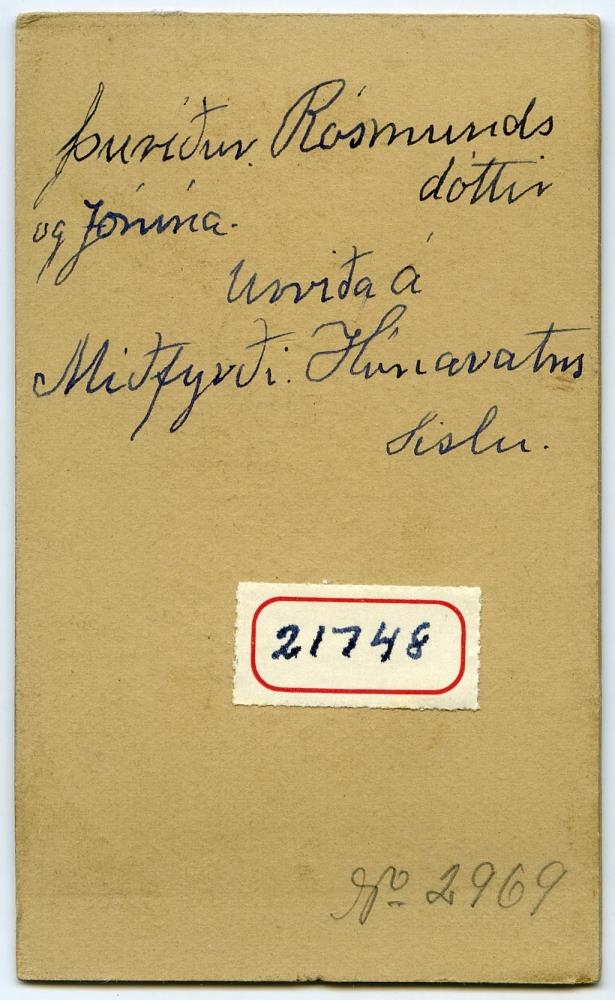 Þuríður. Rósmunds
dóttir
og Jónína.
Urriða á
Miðfyrði. Húnavatns
Sislu.
21748
No 2969